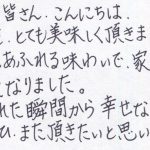 皆さん、こんにちは。
、とても美味しく頂きま
あふれる味わいで、家
となりました。
れた瞬間から幸せな
ひ、また頂きたいと思い